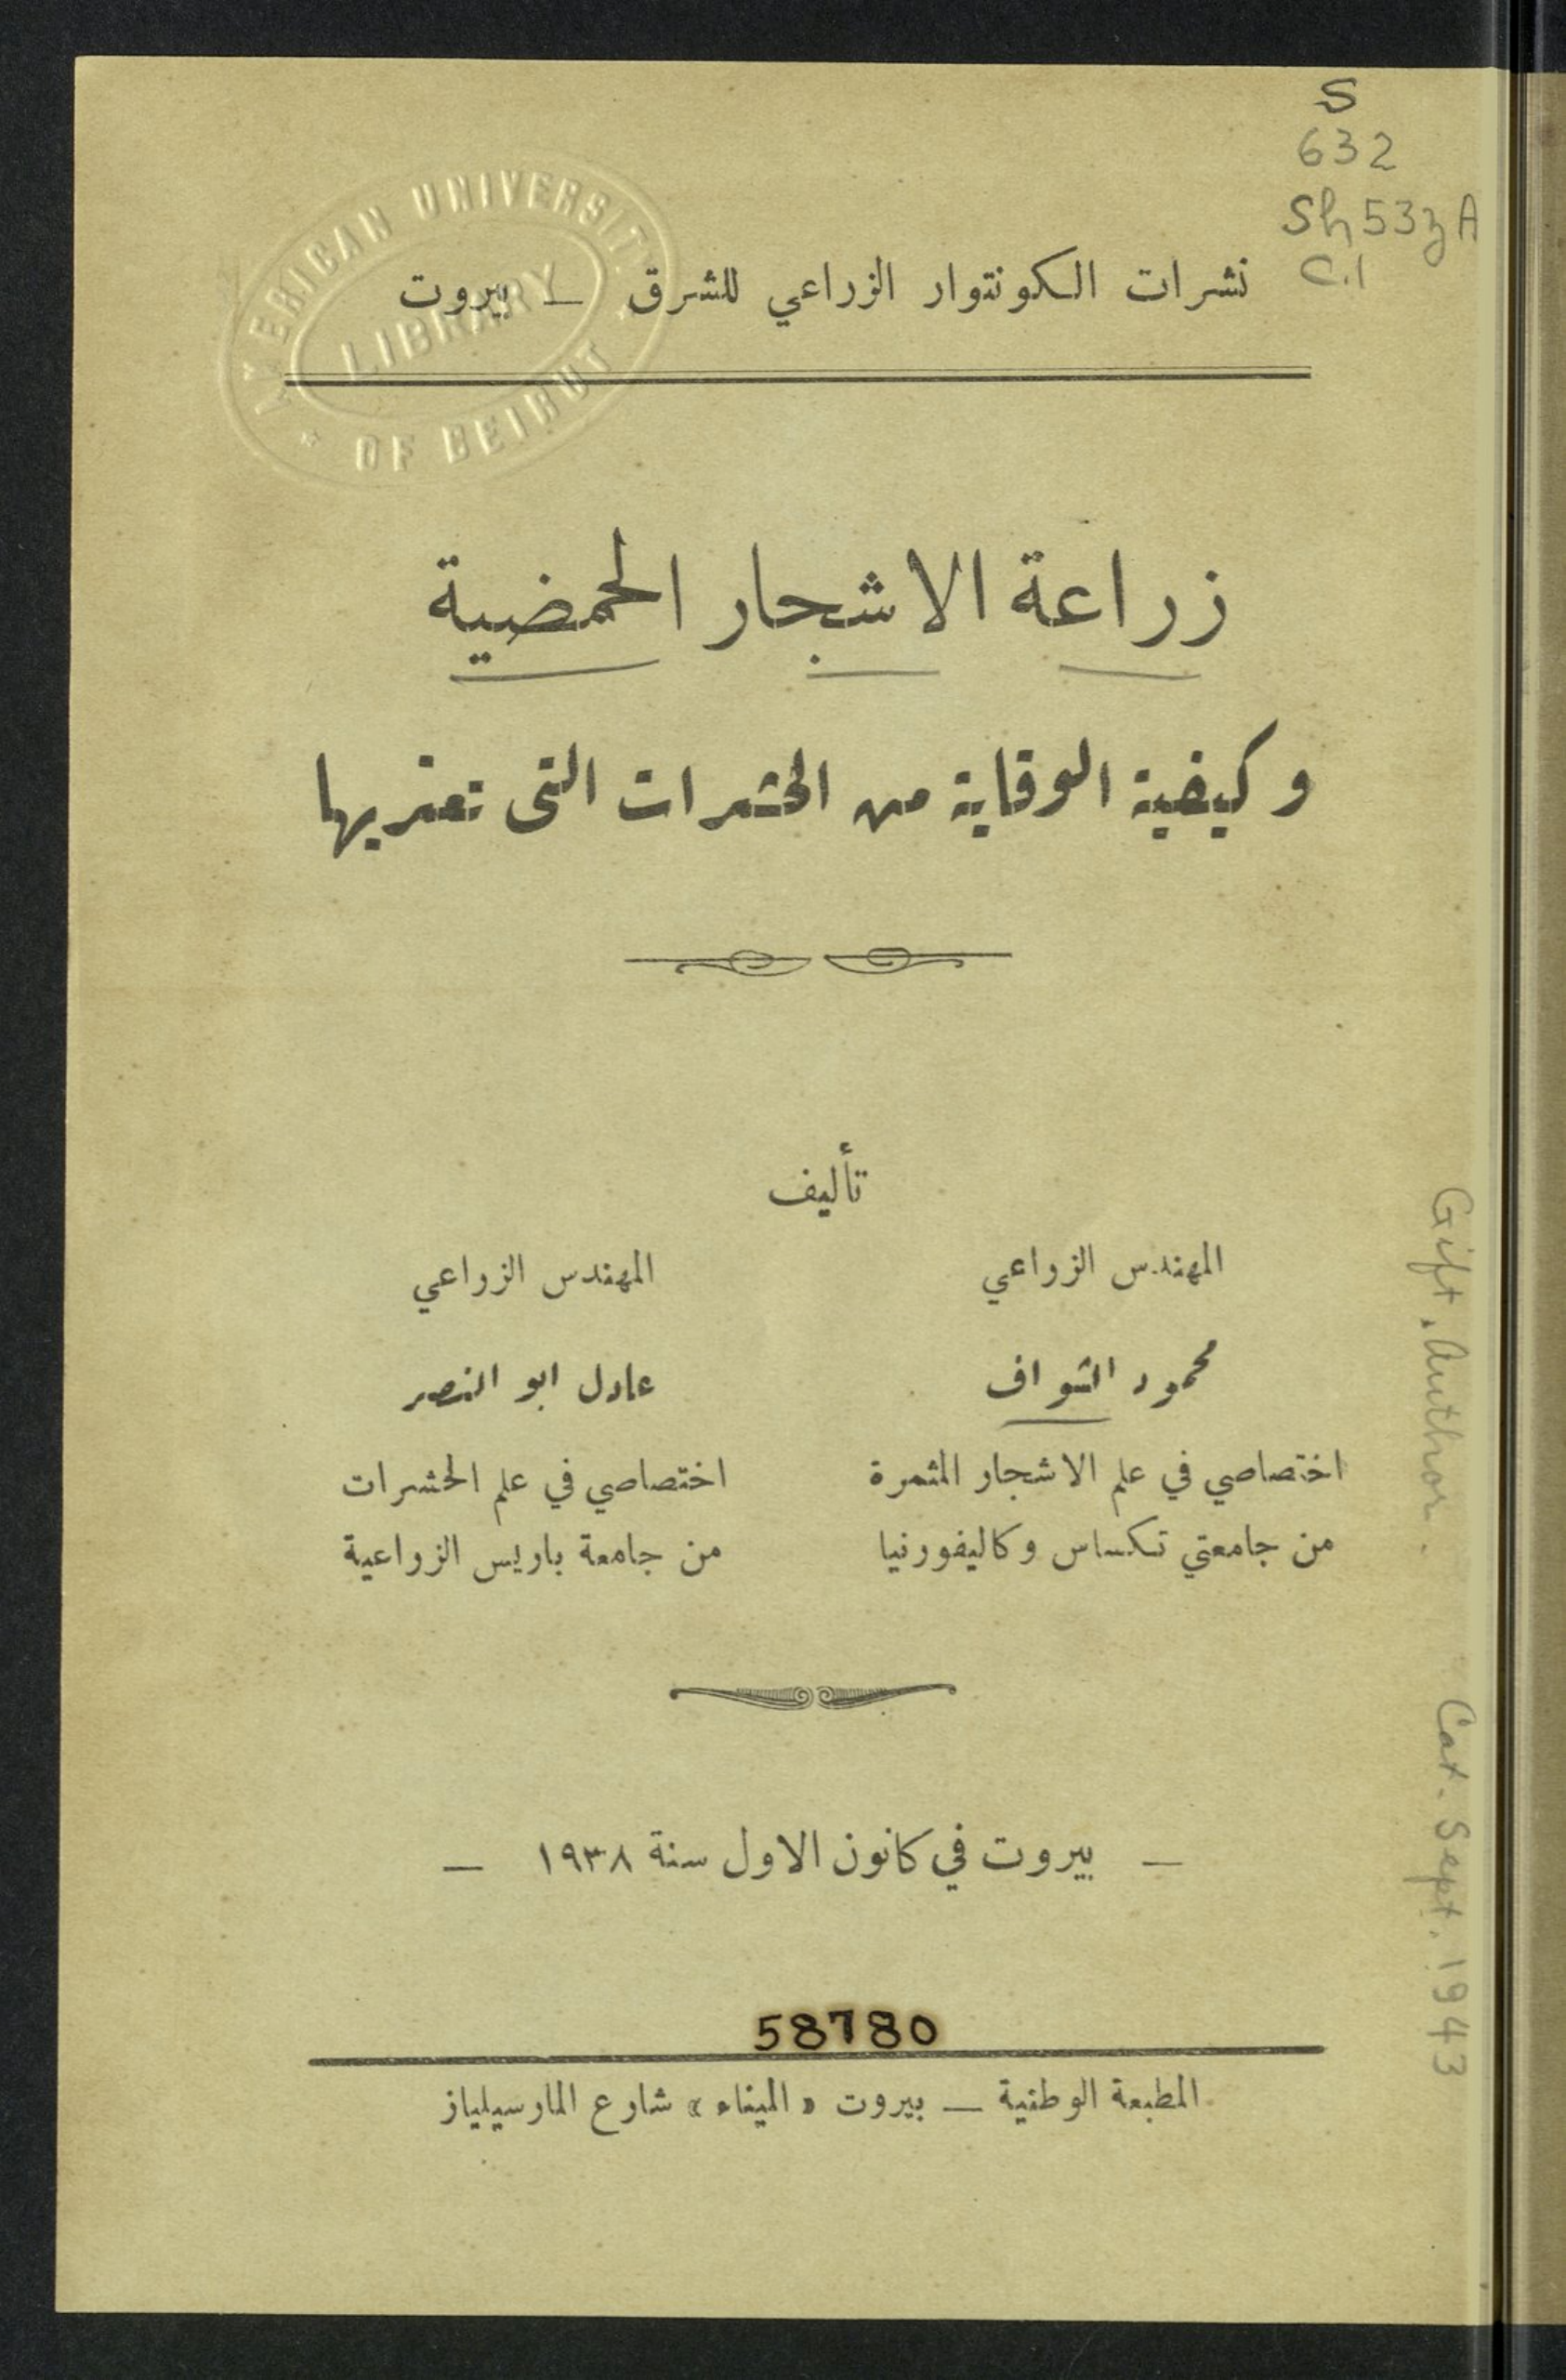 S
632
Sh53zA
C.1
AMERICAN UNIVERSITY
LIBRARY
OF BEIRUT
نشرات الكونتوار الزراعي للشرق — بيروت
زراعة الاشجار الحمضية
وكيفية الوقاية من الحشرات التي تعتريها
تأليف
المهندس الزراعي
محمود الشواف
اختصاصي في علم الاشجار المثمرة
من جامعتي تكساس وكاليفورنيا
المهندس الزراعي
عادل ابو النصر
اختصاصي في علم الحشرات
من جامعة باريس الزراعية
— بيروت في كانون الاول سنة ١٩٣٨ —
58780
المطبعة الوطنية — بيروت « الميناء » شارع المارسيلياز
Gift, Author.
Cat. Sept. 1943